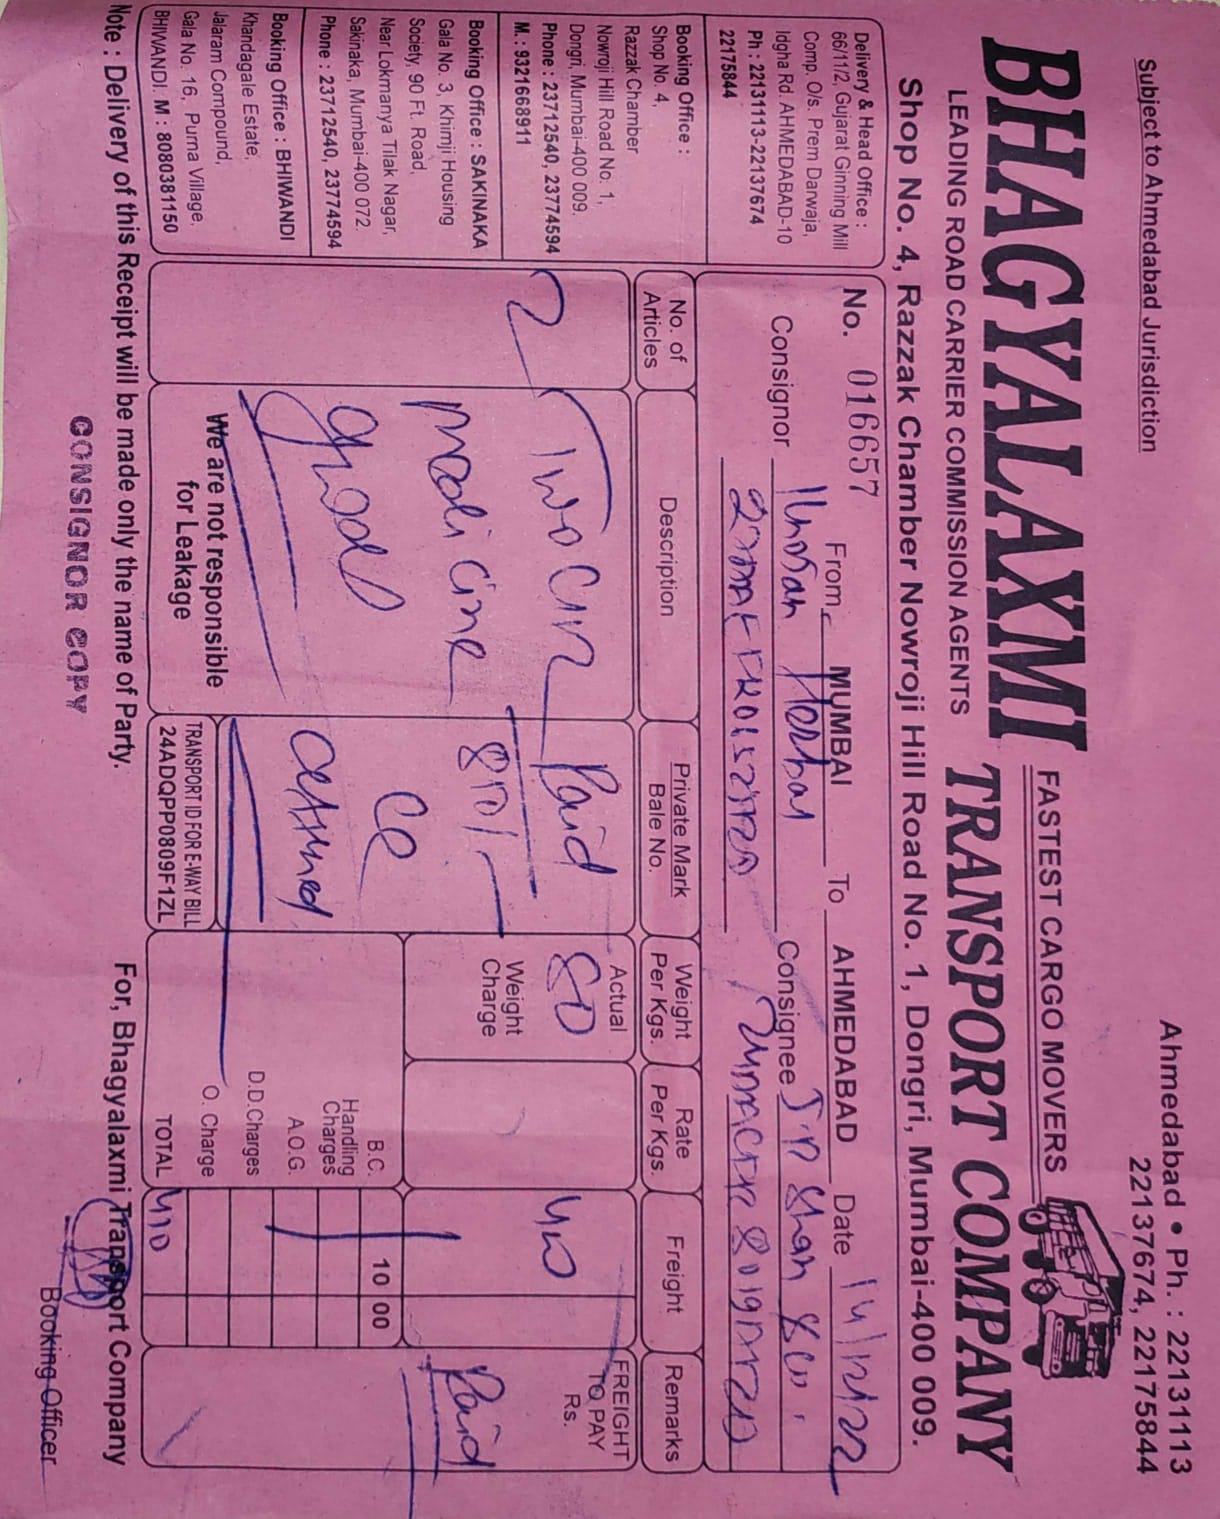 Subject to Ahmedabad Jurisdiction
Ahmedabad • Ph. : 22131113
22137674, 22175844
BHAGYALAXMI
FASTEST CARGO MOVERS
TRANSPORT COMPANY
LEADING ROAD CARRIER COMMISSION AGENTS
Shop No. 4, Razzak Chamber Nowroji Hill Road No. 1, Dongri, Mumbai-400 009.
Delivery & Head Office :
66/11/2, Gujarat Ginning Mill
Comp. O/s. Prem Darwaja,
Idgha Rd. AHMEDABAD-10
Ph : 22131113-22137674
22175844
Booking Office :
Shop No. 4,
Razzak Chamber
Nowroji Hill Road No. 1,
Dongri, Mumbai-400 009.
Phone : 23712540, 23774594
M. : 9321668911
Booking Office : SAKINAKA
Gala No. 3, Khimji Housing
Society, 90 Ft. Road,
Near Lokmanya Tilak Nagar,
Sakinaka, Mumbai-400 072.
Phone : 23712540, 23774594
Booking Office : BHIWANDI
Khandagale Estate,
Jalaram Compound,
Gala No. 16, Purna Village,
BHIWANDI. M : 8080381150
No. 016657 From MUMBAI To AHMEDABAD Date 14/12/22
Consignor Consignee
No. of Articles
Description
Private Mark Bale No.
Weight Per Kgs.
Rate Per Kgs.
Freight
Remarks
2
Two
medicine
good
We are not responsible
for Leakage
Paid
TRANSPORT ID FOR E-WAY BILL
24ADQPP0809F1ZL
Actual
80
Weight
Charge
FREIGHT
TO PAY
Rs.
Paid
B.C. 10 00
Handling
Charges
A.O.G.
D.D.Charges
O. Charge
TOTAL
Note : Delivery of this Receipt will be made only the name of Party.
For, Bhagyalaxmi Transport Company
CONSIGNOR COPY
Booking Officer